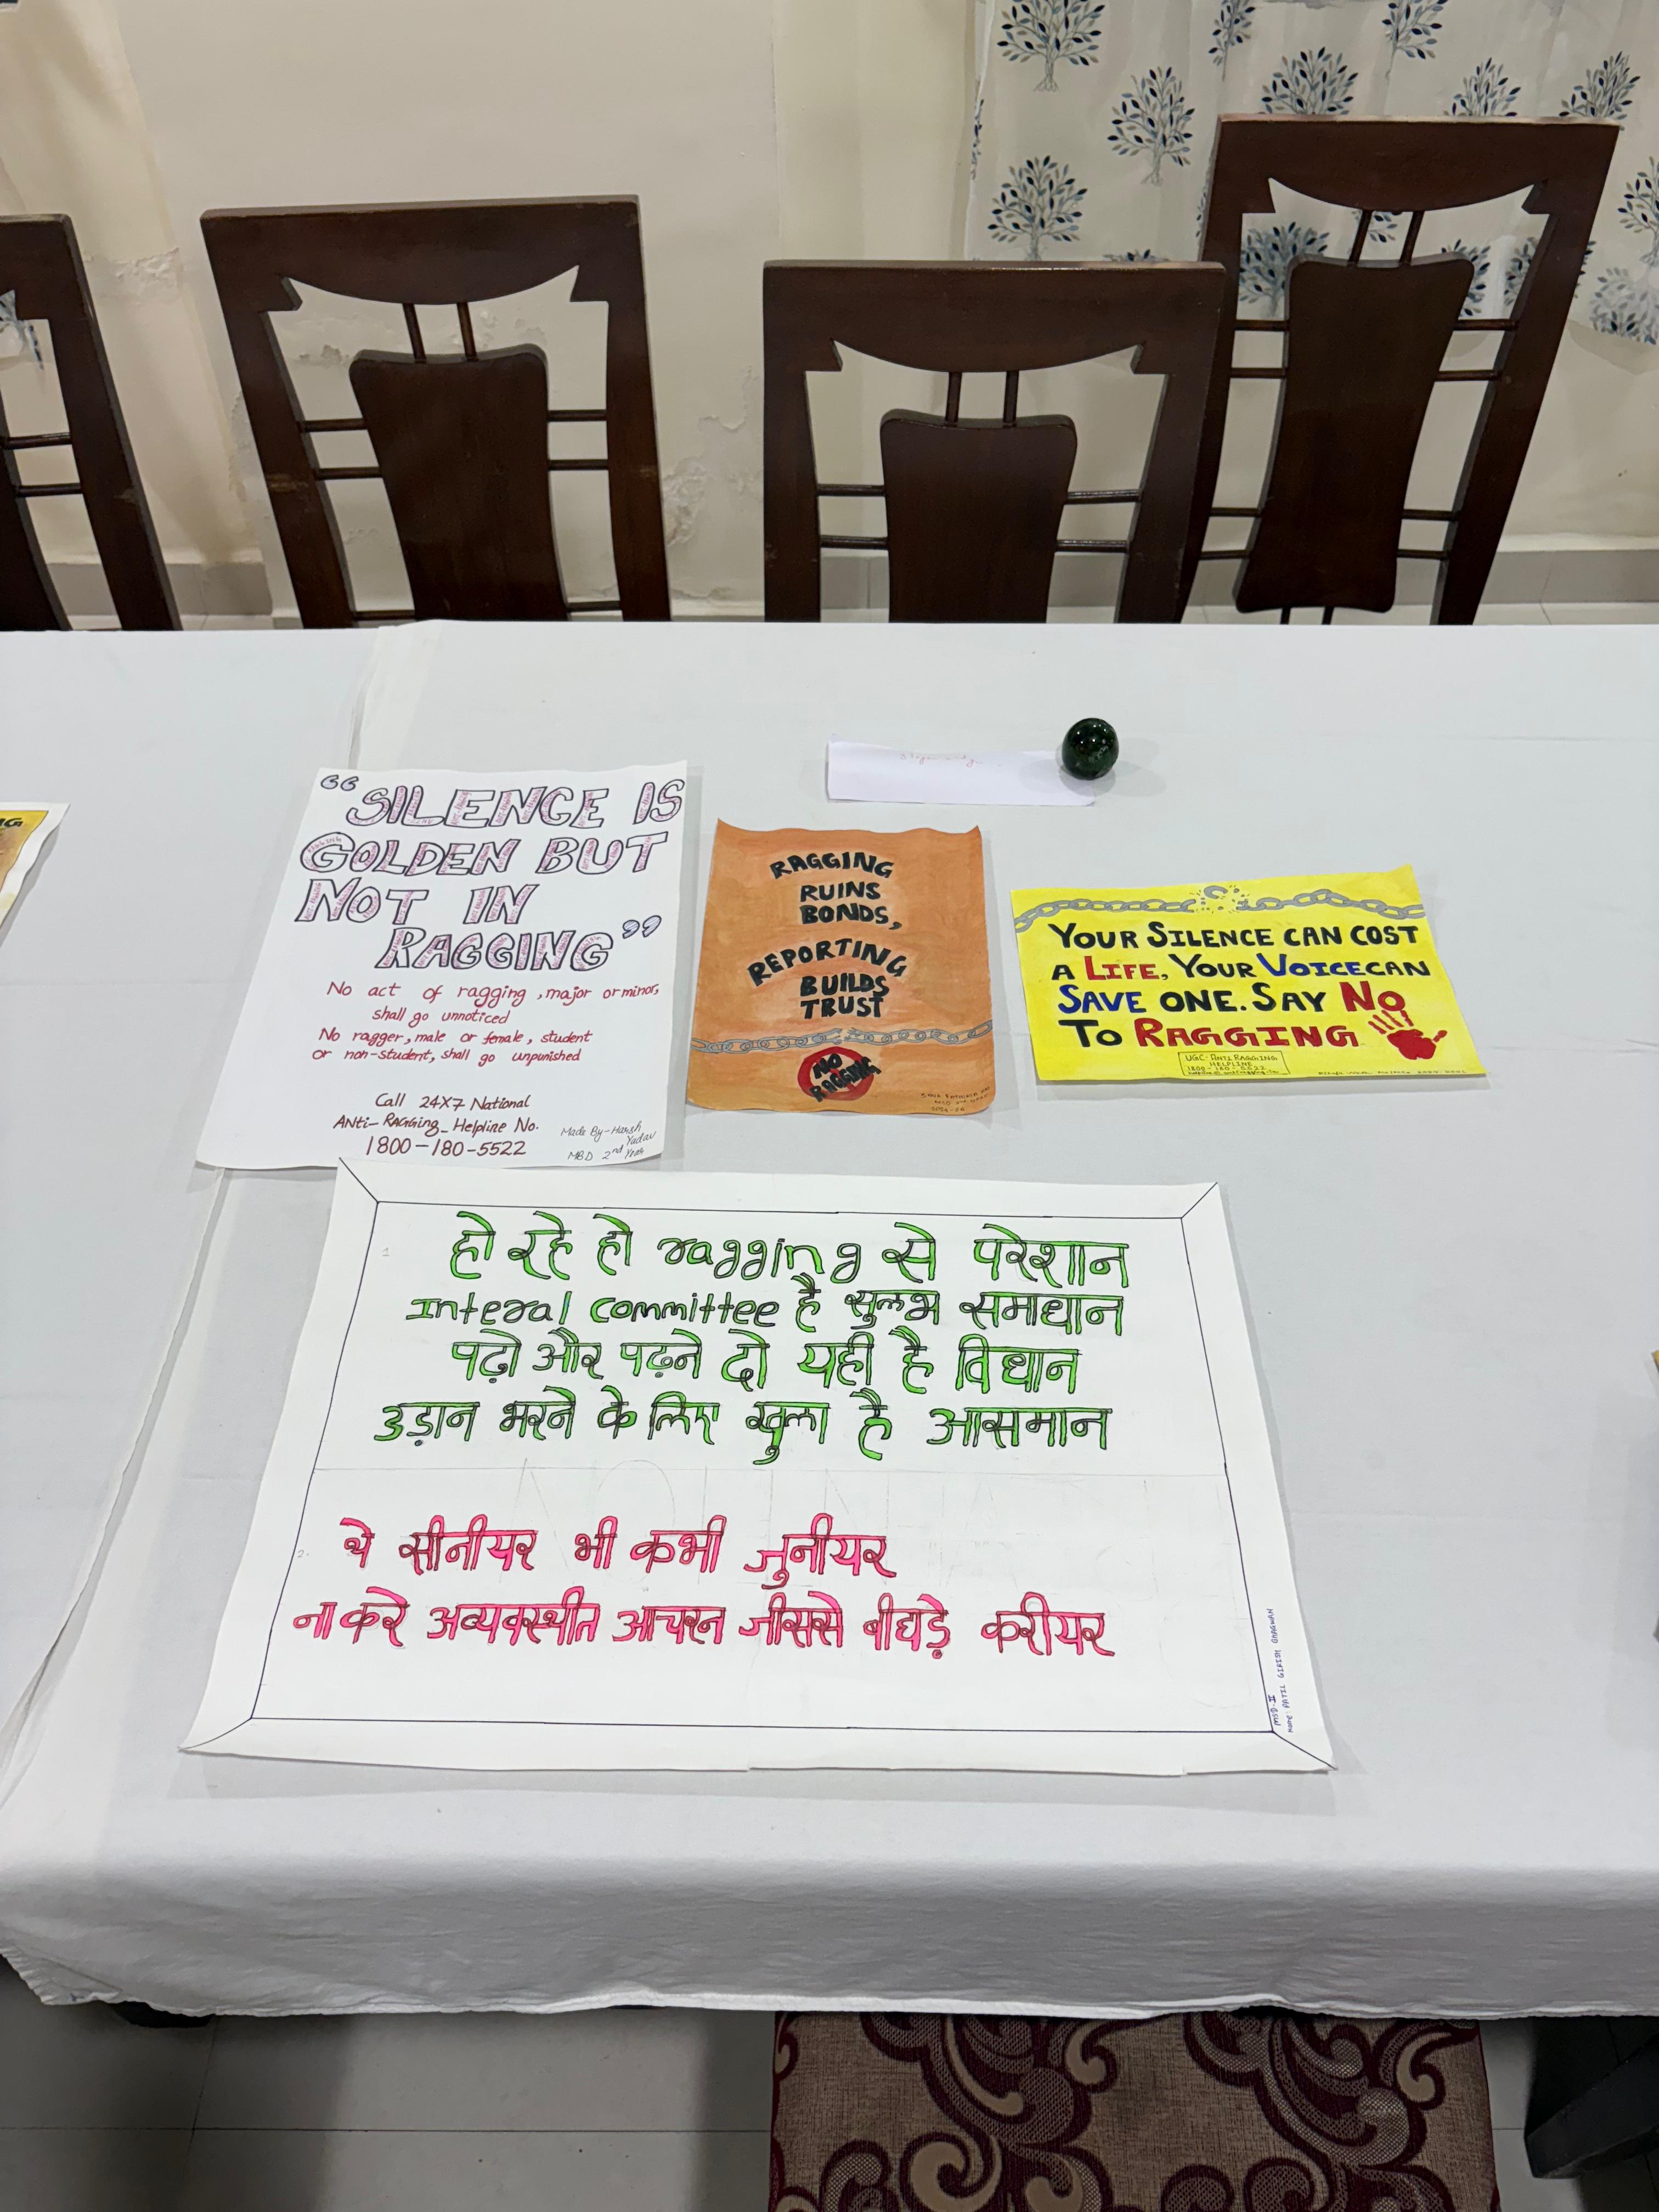 “SILENCE IS
GOLDEN BUT
NOT IN
RAGGING”
No act of ragging, major or minor,
shall go unnoticed
No ragger, male or female, student
or non-student, shall go unpunished
Call 24X7 National
ANti-RAGGING Helpline No.
1800-180-5522
Made By-Harsh
Yadav
MBD 2nd Year
RAGGING
RUINS
BONDS,
REPORTING
BUILDS
TRUST
NO
RAGGING
YOUR SILENCE CAN COST
A LIFE, YOUR VOICE CAN
SAVE ONE. SAY NO
TO RAGGING
UGC ANTI RAGGING
HELPLINE
1800-180-5522
हो रहे हो ragging से परेशान
Interal committee है सुलभ समाधान
पढ़ो और पढ़ने दो यही है विधान
उड़ान भरने के लिए खुला है आसमान
थे सीनीयर भी कभी जुनीयर
ना करे अव्यवस्थीत आचरन जीससे बीघड़े करीयर
MSD-II
Name: PATIL GIRISH